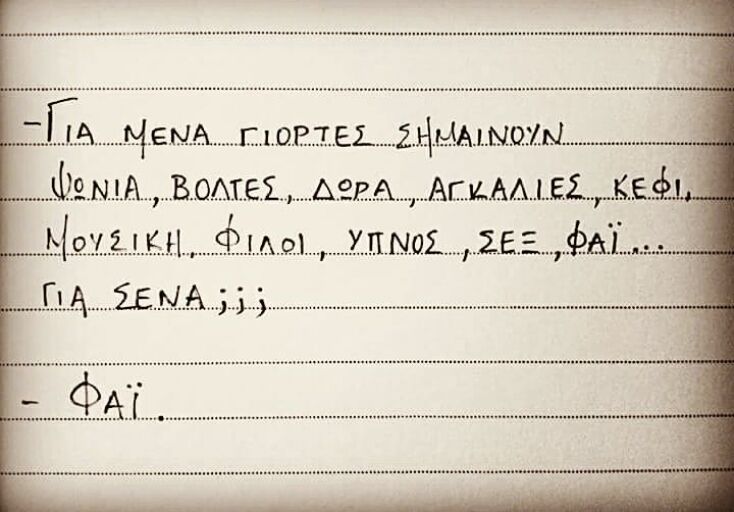 -ΓΙΑ ΜΕΝΑ ΓΙΟΡΤΕΣ ΣΗΜΑΙΝΟΥΝ
ΨΩΝΙΑ, ΒΟΛΤΕΣ, ΔΩΡΑ, ΑΓΚΑΛΙΕΣ, ΚΕΦΙ,
ΜΟΥΣΙΚΗ, ΦΙΛΟΙ, ΥΠΝΟΣ, ΣΕΞ, ΦΑΪ...
ΓΙΑ ΣΕΝΑ;;;
- ΦΑΪ.